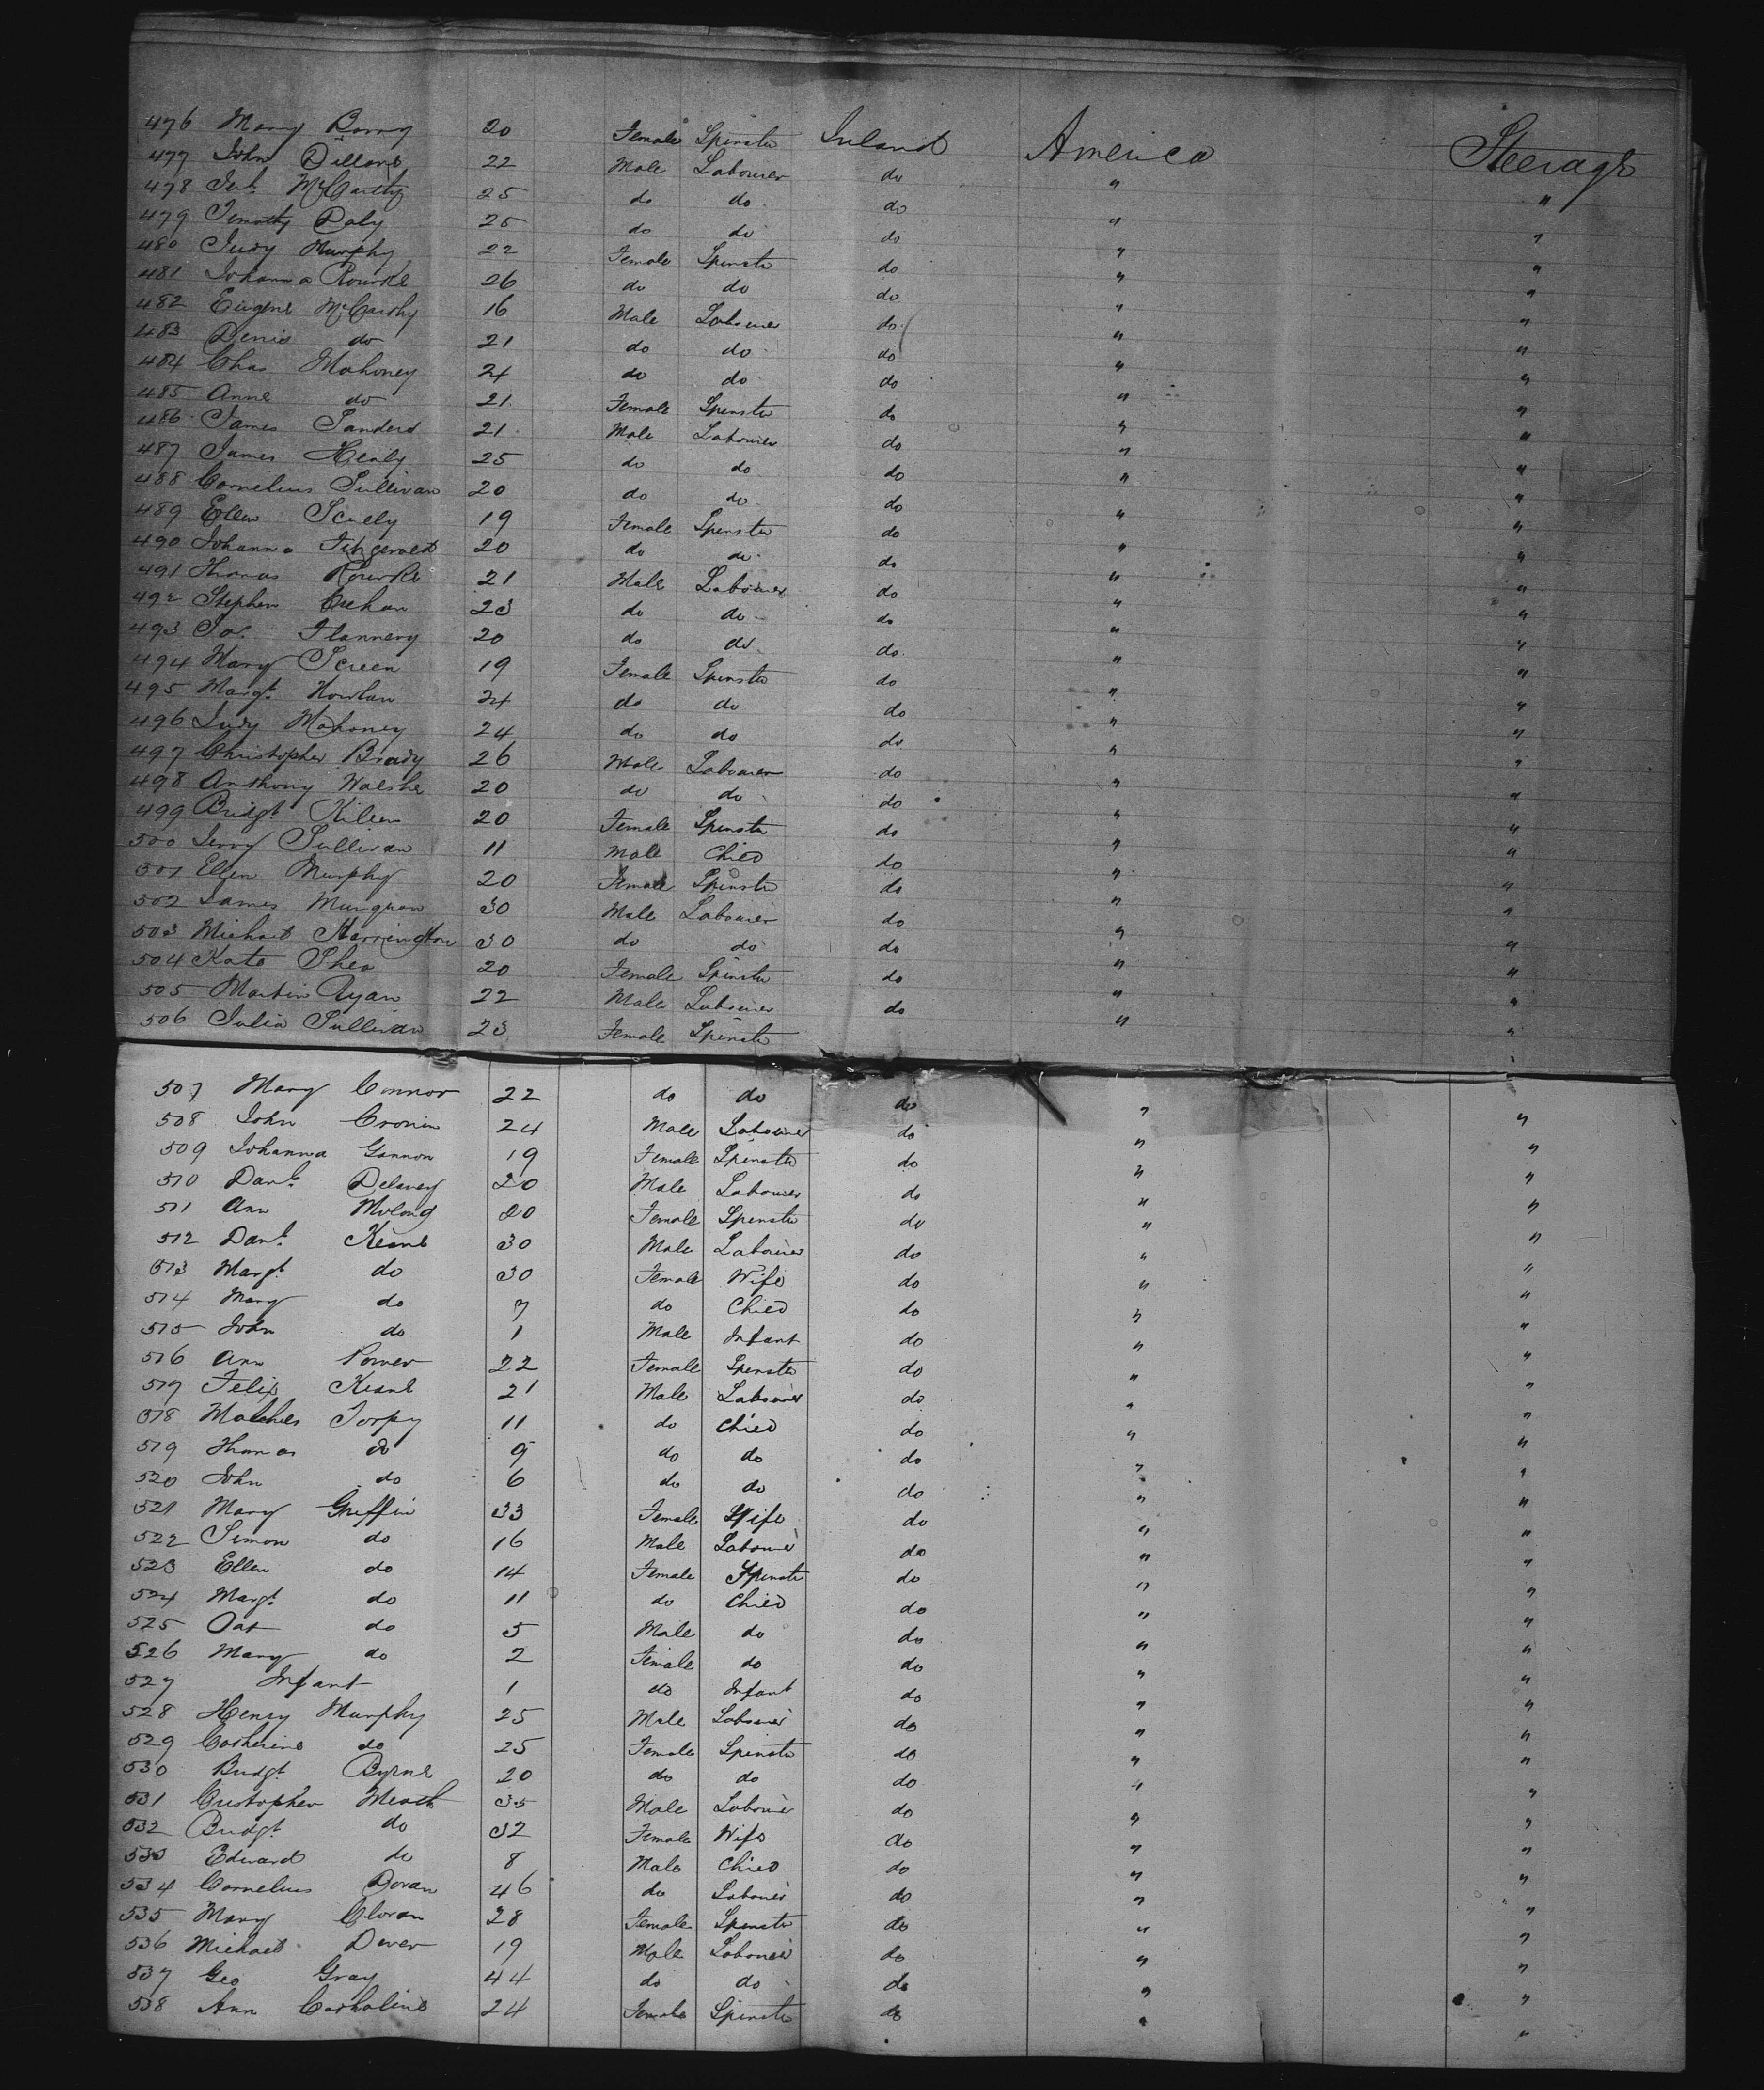 476 Mary Barry 20 Female Spinster Ireland America Steerage
477 John Dillane 22 Male Labourer do " "
478 Jerh. McCarthy 25 do do do " "
479 Timothy Daly 25 do do do " "
480 Judy Murphy 22 Female Spinster do " "
481 Johanna Rourke 26 do do do " "
482 Eugene McCarthy 16 Male Labourer do " "
483 Denis do 21 do do do " "
484 Chas Mahoney 24 do do do " "
485 Anne do 21 Female Spinster do " "
486 James Sanders 21 Male Labourer do " "
487 James Healy 25 do do do " "
488 Cornelius Sullivan 20 do do do " "
489 Ellen Scully 19 Female Spinster do " "
490 Johanna Fitzgerald 20 do do do " "
491 Thomas Rourke 21 Male Labourer do " "
492 Stephen 23 do do do " "
493 Flannery 20 do do do " "
494 Mary Screen 19 Female Spinster do " "
495 Margt. Nowlan 24 do do do " "
496 Judy Mahoney 24 do do do " "
497 Christopher Brady 26 Male Labourer do " "
498 Anthony Walshe 20 do do do " "
499 Bridgt. Kileen 20 Female Spinster do " "
500 Jerry Sullivan 11 Male Child do " "
501 Ellen Murphy 20 Female Spinster do " "
502 James 30 Male Labourer do " "
503 Michael Harrington 30 do do do " "
504 Kate Shea 20 Female Spinster do " "
505 Martin Ryan 22 Male Labourer do " "
506 Julia Sullivan 23 Female Spinster "
507 Mary Connor 22 do do do " "
508 John Cronin 24 Male Labourer do " "
509 Johanna Gannon 19 Female Spinster do " "
510 Danl. Delaney 20 Male Labourer do " "
511 Ann 20 Female Spinster do " "
512 Danl. Keane 30 Male Labourer do " "
513 Margt. do 30 Female Wife do " "
514 Mary do 7 do Child do " "
515 John do 1 Male Infant do " "
516 Ann Power 22 Female Spinster do " "
517 Felix Keane 21 Male Labourer do " "
518 Torpy 11 do Child do " "
519 Thomas do 9 do do do " "
520 John do 6 do do do " "
521 Mary Griffin 33 Female Wife do " "
522 Simon do 16 Male Labourer do " "
523 Ellen do 14 Female Spinster do " "
524 Margt. do 11 do Child do " "
525 Pat do 5 Male do do " "
526 Mary do 2 Female do do " "
527 Infant 1 do Infant do " "
528 Henry Murphy 25 Male Labourer do " "
529 Catherine do 25 Female Spinster do " "
530 Bridgt. Byrne 20 do do do " "
531 Cristopher Meath 35 Male Labourer do " "
532 Bridgt. do 32 Female Wife do " "
533 Edward do 8 Male Child do " "
534 Cornelius Doran 46 do Labourer do " "
535 Mary Cloran 28 Female Spinster do " "
536 Michael Dwer 19 Male Labourer do " "
537 Geo Gray 44 do do do " "
538 Ann 24 Female Spinster do " "